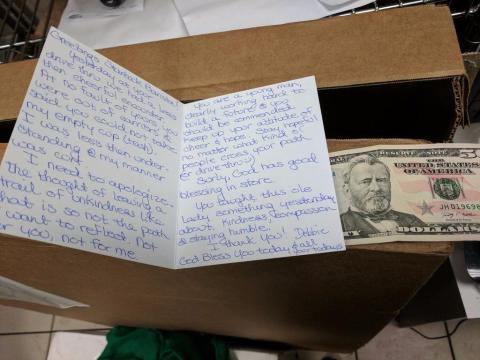 Greetings Starbucks Barista!
Yesterday at your
drive thru we had a less
then cheerful encounter.
At no fault of yours you
were out of carriers &
said you could not take
my empty cup (trash).
I was less then under-
standing & my manner
was curt.
I need to apologize.
The thought of leaving a
trail of unkindness like
that is so not the path
I want to reflect. Not
for you, not for me.
You are a young man,
clearly working hard to
build a future & you
should be commended.
Keep up your attitude of
cheer & hope. Stay hopeful
no matter what kind of
people cross your path
(or drive thru)
God has good
blessing in store.
You taught this ole
lady something yesterday
about kindness, compassion
& staying humble.
I thank You! Debbie
God Bless You today & all
your todays
RESERVE NOTE
THE UNITED STATES
OF AMERICA
JH01969
DOLLARS